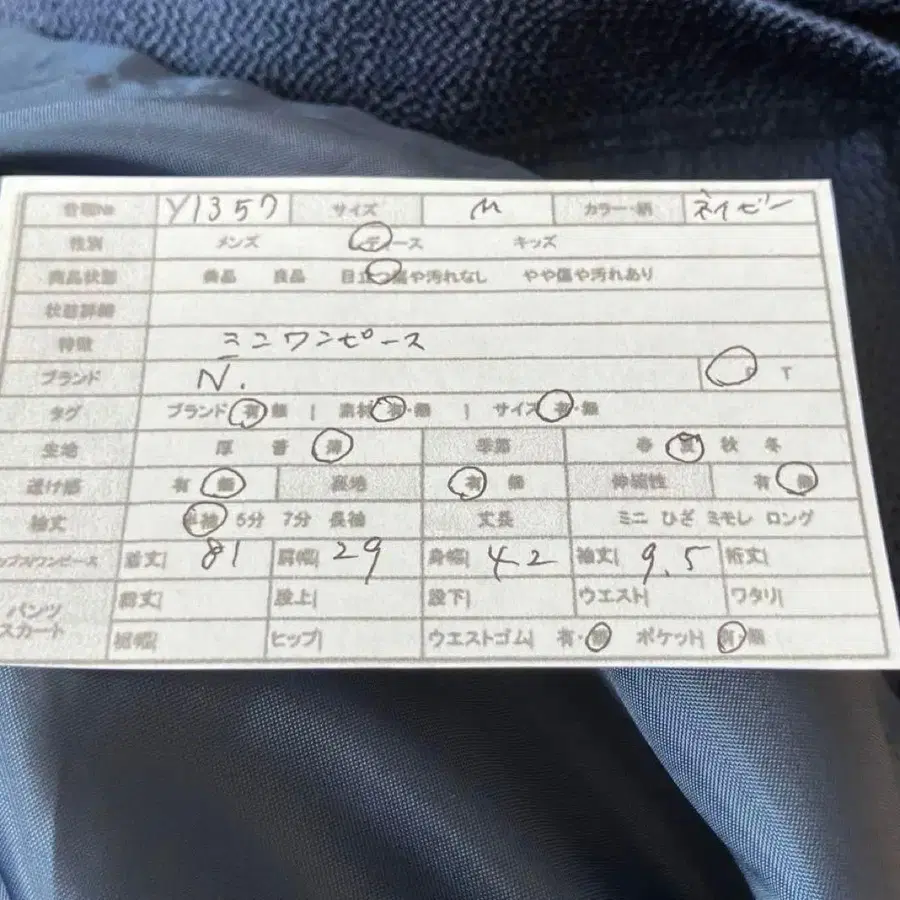 管理No Y1357 サイズ M カラー・柄 ネイビー
性別 メンズ レディース キッズ
商品状態 美品 良品 目立つ傷や汚れなし やや傷や汚れあり
状態詳細
特徴 ミニワンピース
ブランド N. T
タグ ブランド 有・無 | 素材 有・無 | サイズ 有・無
生地 厚 普 薄 季節 春 夏 秋 冬
透け感 有 無 裏地 有 無 伸縮性 有 無
袖丈 半袖 5分 7分 長袖 丈長 ミニ ひざ ミモレ ロング
ップス/ワンピース 着丈| 81 肩幅| 29 身幅| 42 袖丈| 9.5 裄丈|
パンツ スカート 総丈| 股上| 股下| ウエスト| ワタリ|
裾幅| ヒップ| ウエストゴム| 有・無 ポケット| 有・無